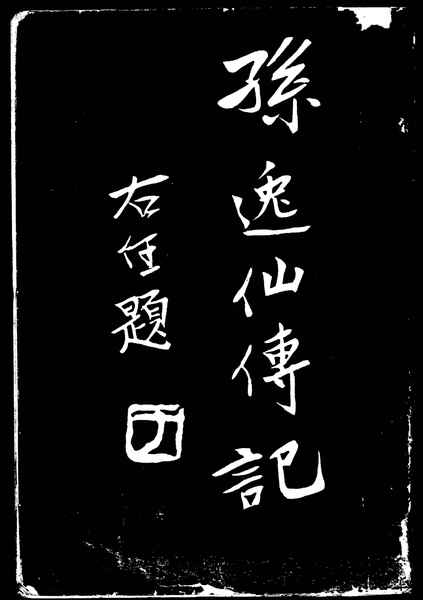 孫逸仙傳記
右任題
于